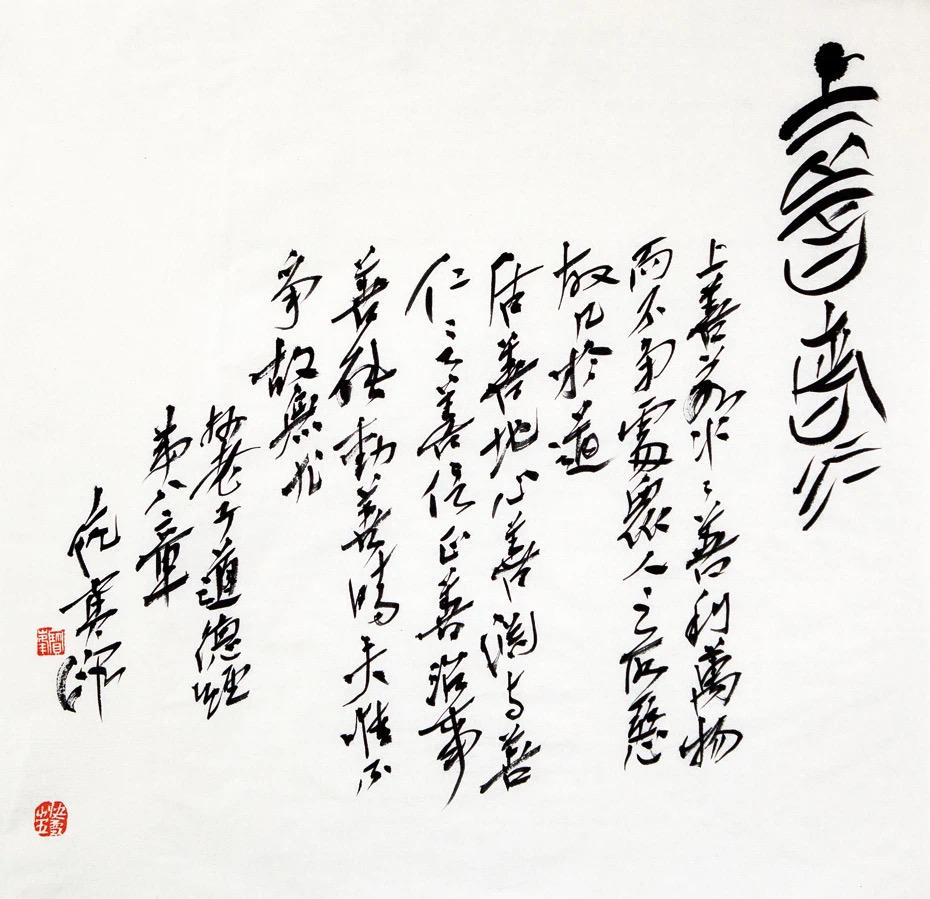 上善若水
上善若水〻善利萬物
而不爭處眾人之所惡
故几於道
居善地心善淵与善
仁言善信正善治事
善能動善時夫惟不
爭故無尤
抄老子道德經
第八章